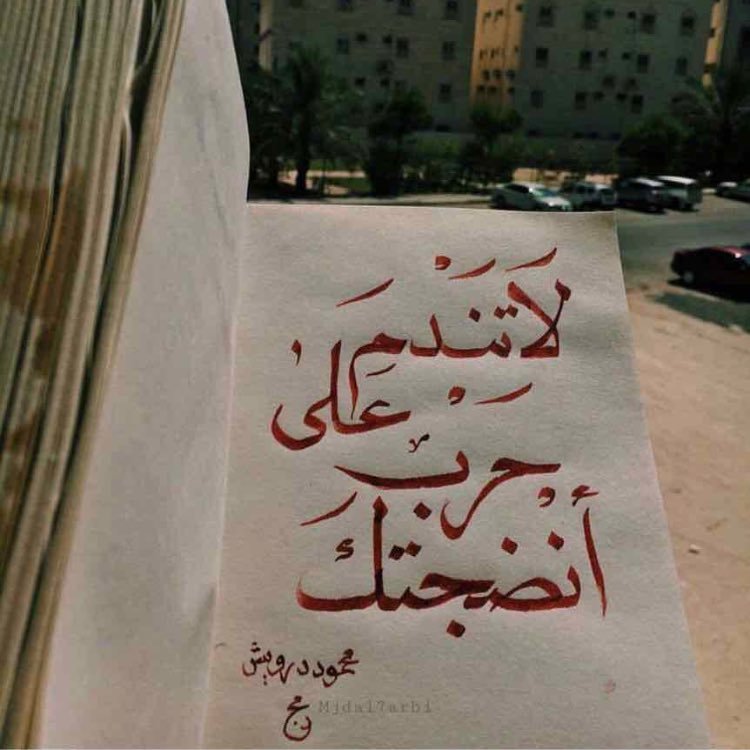 لَا تَنْدَم
عَلَى
حَرْبٍ
أنضجتك
محمود درويش
مج
Mjdal7arbi